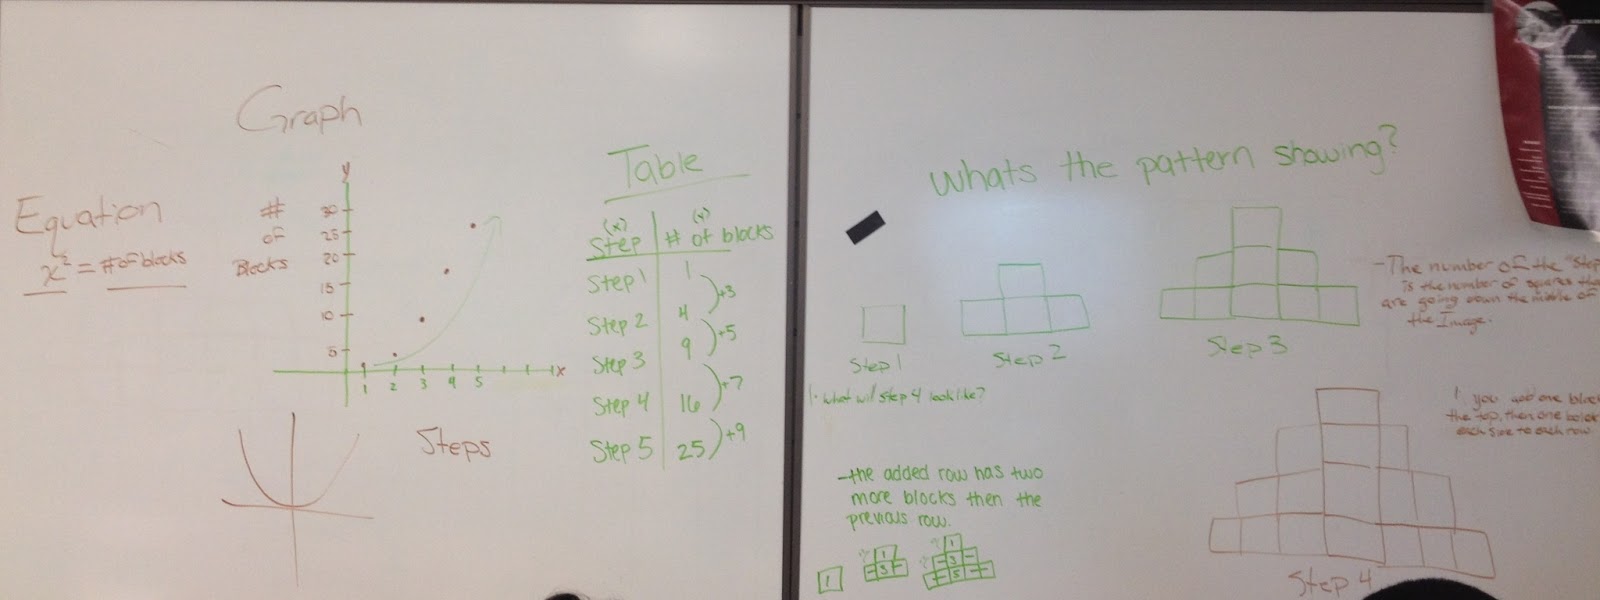 Graph
Equation
x² = # of blocks
#
of
Blocks
y
30
25
20
15
10
5
1 2 3 4 5
x
Steps
Table
(x) (y)
Step # of blocks
Step 1 1
+3
Step 2 4
+5
Step 3 9
+7
Step 4 16
+9
Step 5 25
Whats the pattern showing?
Step 1
Step 2
Step 3
- The number of the "Step
is the number of squares tha
are going down the middle of
the Image.
1. what will step 4 look like?
- the added row has two
more blocks then the
previous row.
1
1
3
1
3
5
1 you add one block
the top, then one
each side to each row
Step 4